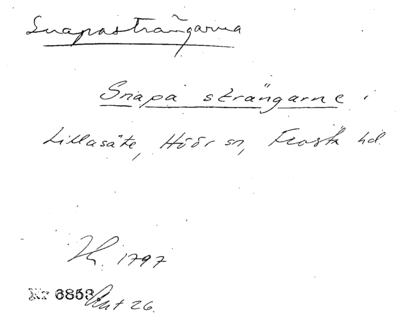 Snapasträngarna
Snapa strängarne.
Lillasäte, Höör sn, Frosta hd.
1797
Nr 6853 26.